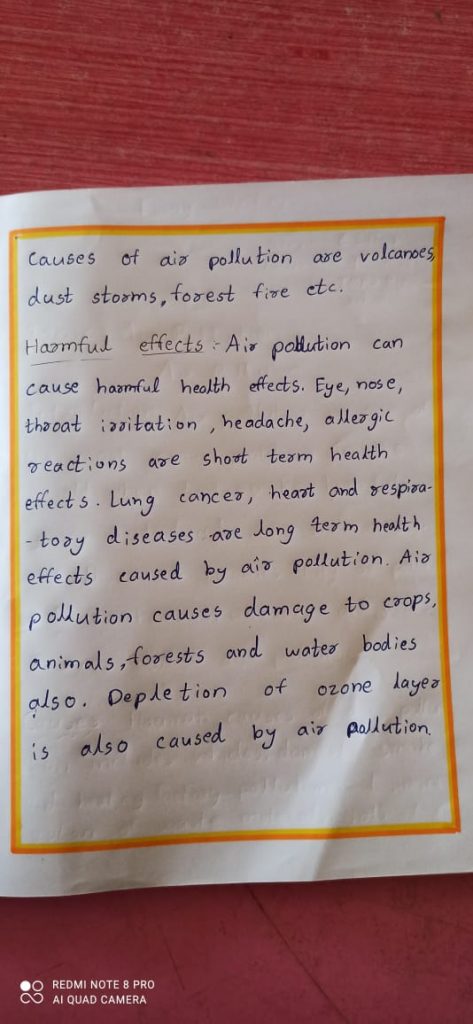 Causes of air pollution are volcanoes,
dust storms, forest fire etc.
Harmful effects :- Air pollution can
cause harmful health effects. Eye, nose,
throat irritation, headache, allergic
reactions are short term health
effects. Lung cancer, heart and respira-
-tory diseases are long term health
effects caused by air pollution. Air
pollution causes damage to crops,
animals, forests and water bodies
also. Depletion of ozone layer
is also caused by air pollution.
REDMI NOTE 8 PRO
AI QUAD CAMERA